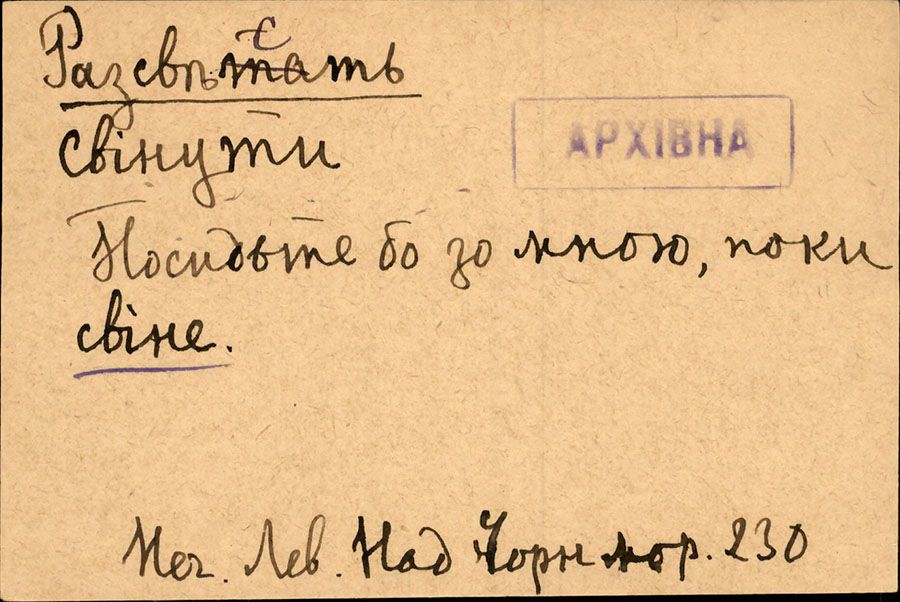 с
Разсвѣтать
АРХІВНА
свінути
Посидьте бо зо мною, поки
свіне.
Неч. Лев. Над Чорн мор. 230